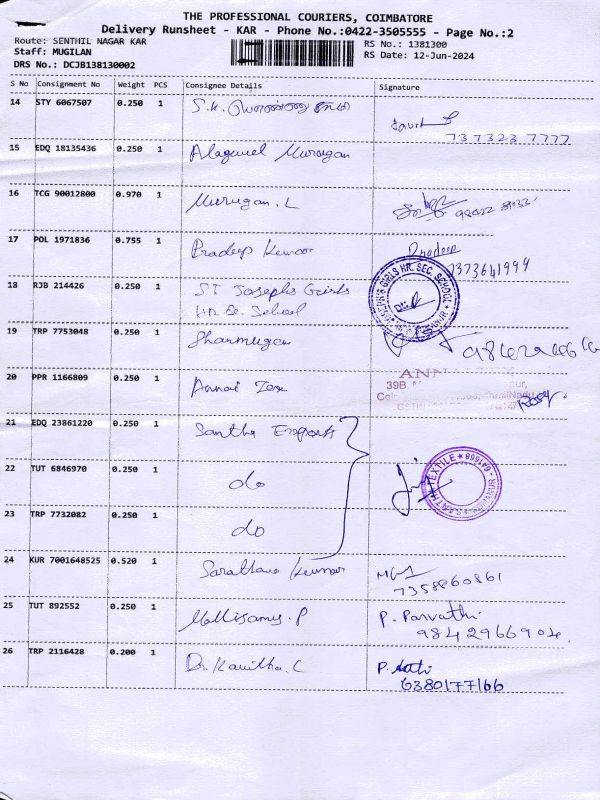 THE PROFESSIONAL COURIERS, COIMBATORE
Delivery Runsheet - KAR - Phone No.:0422-3505555 - Page No.:2
Route: SENTHIL NAGAR KAR
RS No.: 1381300
Staff: MUGILAN
RS Date: 12-Jun-2024
DRS No.: DCJB138130002
S No Consignment No Weight PCS Consignee Details Signature
14 STY 6067507 0.250 1 S.K.
737323 7777
15 EDQ 18135436 0.250 1 Alaguvel Murugan
16 TCG 90012800 0.970 1 Murugan. L
17 POL 1971836 0.755 1 Pradeep Kumar Pradeep
7373641999
18 RJB 214426 0.250 1 ST Josephs Girls
Hr. Se. School
GIRLS HR. SEC. SCHOOL
19 TRP 7753048 0.250 1 Shanmugam
20 PPR 1166809 0.250 1 Annai Tex
39B,
21 EDQ 23861220 0.250 1 Santha Exports
22 TUT 6846970 0.250 1 do
TEXTILE * 641668
23 TRP 7732082 0.250 1 do
24 KUR 7001648525 0.520 1 Saratha Kumar
7358860861
25 TUT 892552 0.250 1 Mallisamy. P P. Parvathi
9842966904.
26 TRP 2116428 0.200 1 Dr. Kavitha. C P.
6380177166